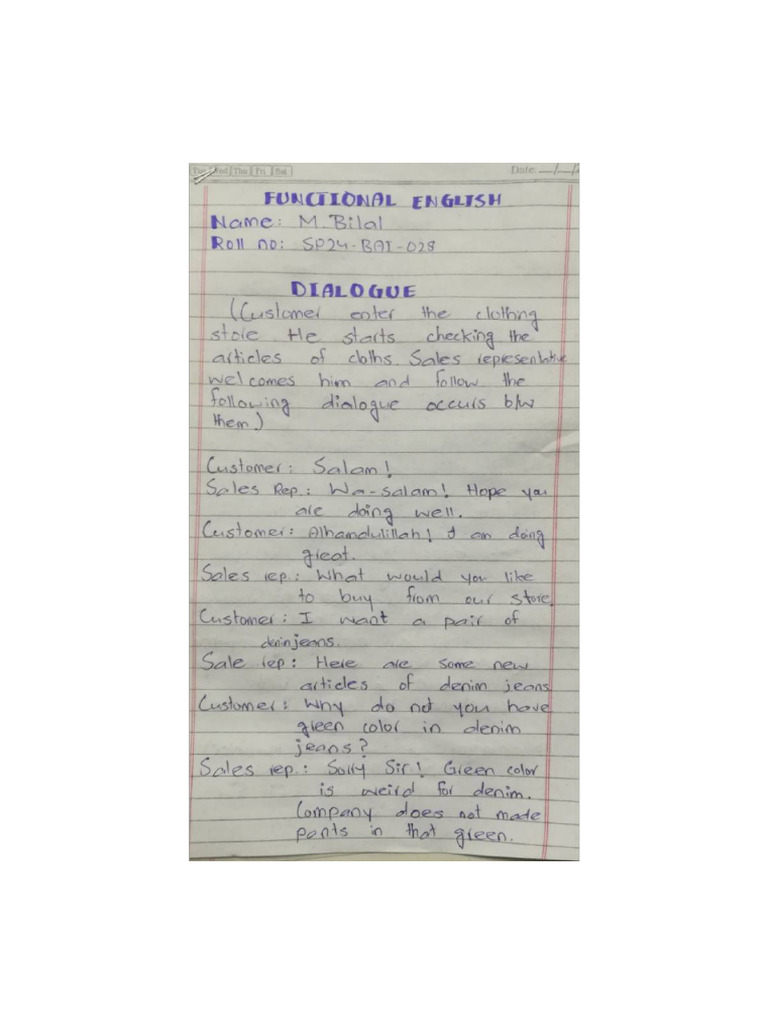 Tue Wed Thu Fri Sat Date:
FUNCTIONAL ENGLISH
Name: M. Bilal
Roll no: SP24-BAI-028
DIALOGUE
(Customer enter the clothing
store. He starts checking the
articles of cloths. Sales representative
welcomes him and follow the
following dialogue occurs b/w
them.)
Customer: Salam!
Sales Rep.: Wa-salam! Hope you
are doing well.
Customer: Alhamdulillah! I am doing
great.
Sales rep.: What would you like
to buy from our store.
Customer: I want a pair of
denim jeans.
Sale rep: Here are some new
articles of denim jeans
Customer: Why do not you have
green color in denim
jeans?
Sales rep.: Sorry Sir! Green color
is weird for denim.
Company does not made
pants in that green.